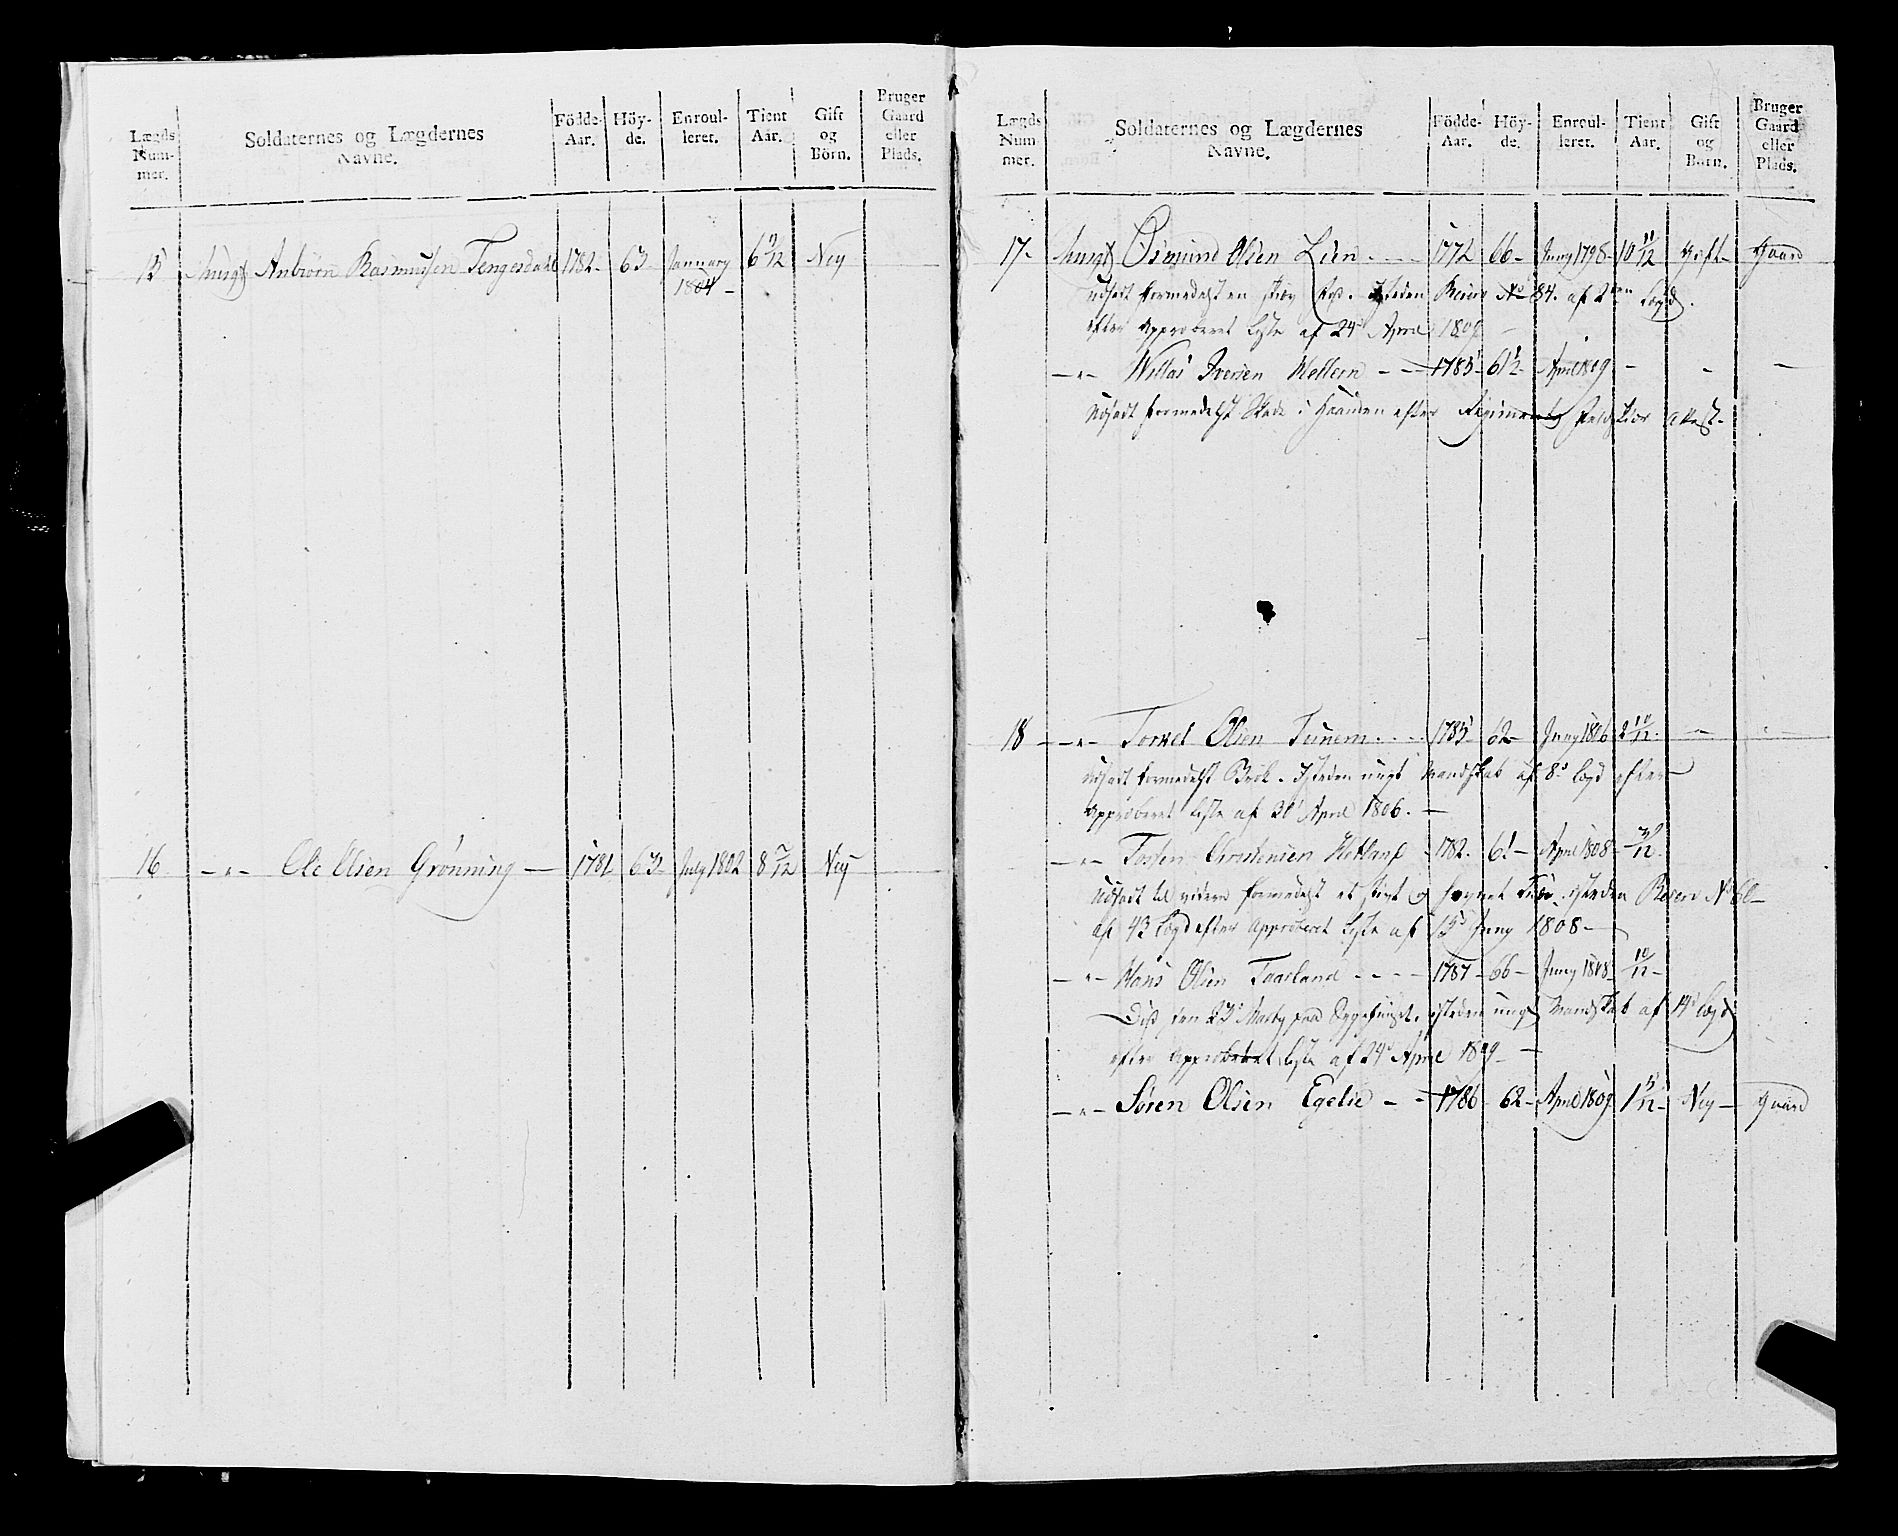 Lægds Num- mer. Soldaternes og Lægdernes Navne. Födde- Aar. Höy- de. Enroul- leret. Tient Aar. Gift og Börn. Bruger Gaard eller Plads.
15 Anbiörn Rasmussen Tengesdahl 1782 63 Januarj 1804 6 Ney
16 Ole Olsen Grönning 1781 63½ July 1802 8 7/12 Ney
Lægds Num- mer. Soldaternes og Lægdernes Navne. Födde- Aar. Höy- de. Enroul- leret. Tient Aar. Gift og Börn. Bruger Gaard eller Plads.
17 Osmund Olsen Lien 1772 66 Juny 1798 10 11/12 Gift Gaard
udsadt formedelst en No 84. af
efter Approberet Liste af 24de April 1809
Iversen Hellern 1785 61½ April 1809
Udsadt formedelst Skade i Haanden efter Regiments attest.
18 Torkel Olsen Tunem 1785 62 Juny 1806 2 10/12
Udsadt formedelst Brök. Isteden ungt Mandskab af 8de Lægd efter
Approberet Liste af April 1806.
Torsten Christensen Hetland 1782. 61 April 1808
Udsadt til videre formedelst et stivt og isteden Reserv No 60
af 43 Lægd efter Approberet Liste af Juny 1808
Hans Olsen Taarland 1787 66 Juny 1808 10/12
Död den paa Sygehuuset. isteden ungt Mandskab af 14de Lægd
efter Approberet Liste af 24de April 1809
Sören Olsen Egelie 1786 62 April 1809 1 Ney Gaard